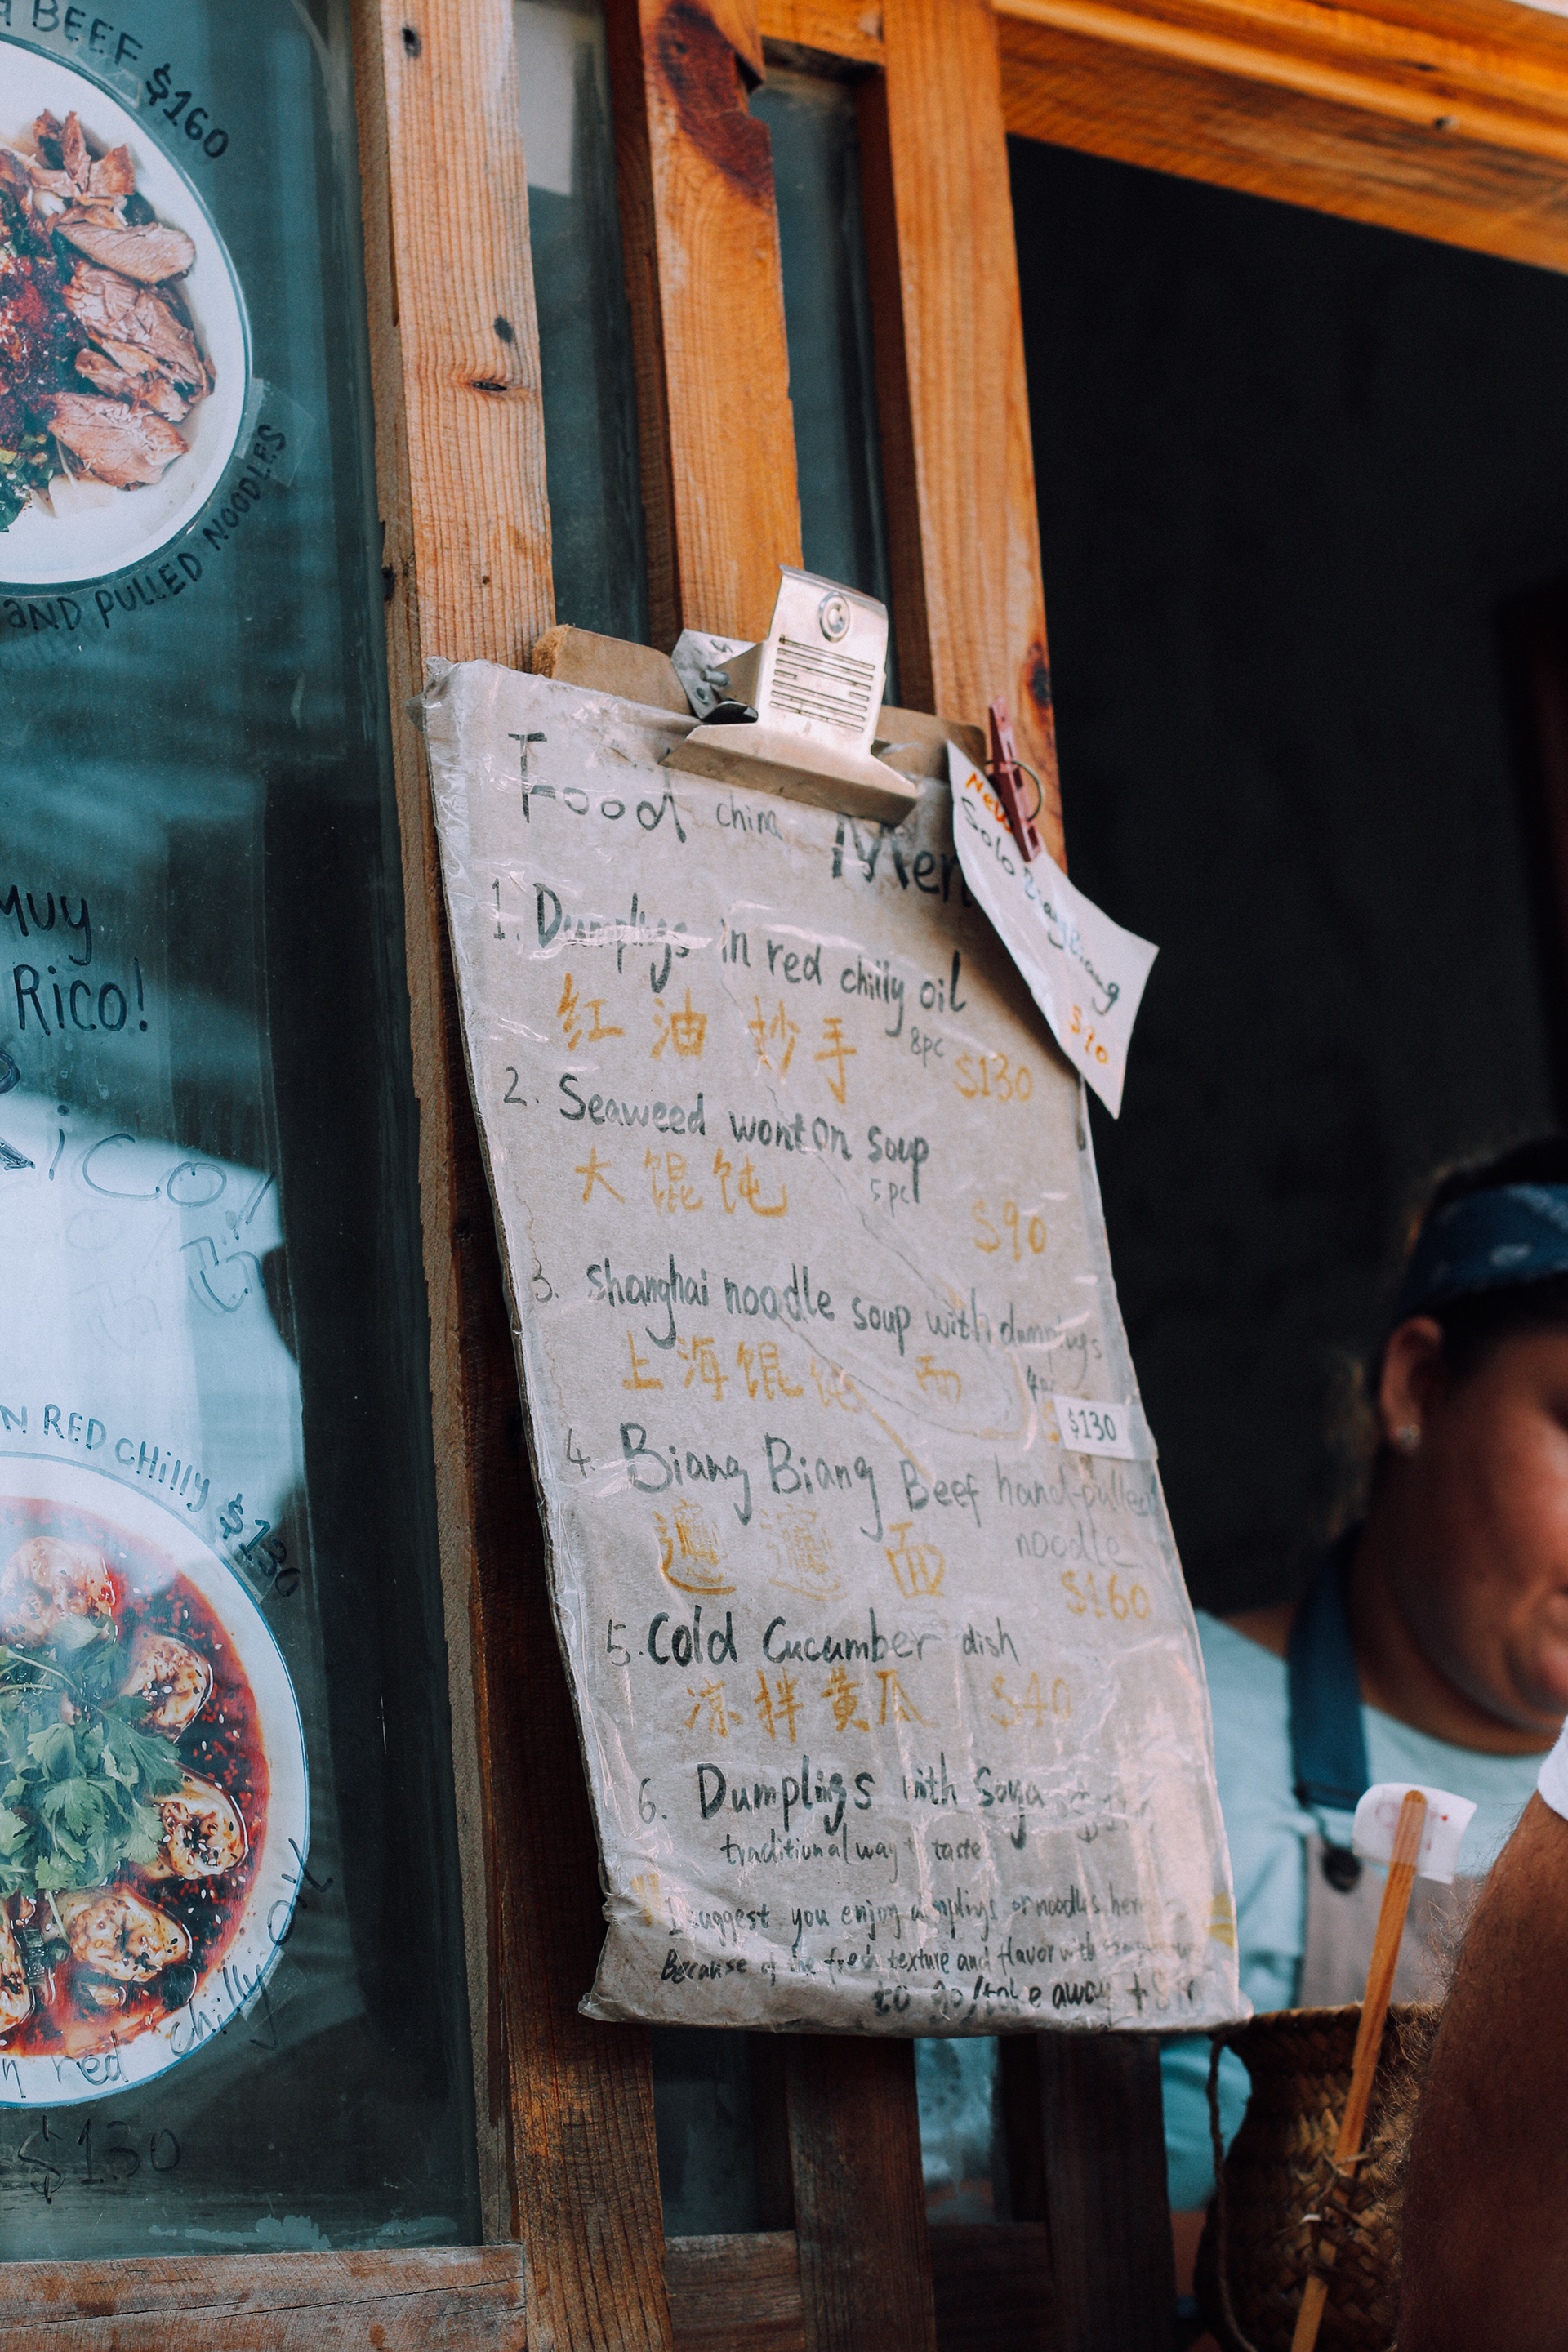 BEEF $160
AND PULLED NOODLES
MUY
RICO!
RICO!
N RED CHilly $130
chilly oil
n red
$130
Food china Men
1. Dumplings in red chilly oil
红油抄手 8pc $130
2. Seaweed wonton soup
大馄饨 5pc $90
3. Shanghai noodle soup with dumplings
上海馄饨面 4pc
$130
4. Biang Biang Beef hand-pulled
noodle
面 $160
5. Cold Cucumber dish
凉拌黄瓜 $40
6. Dumplings with Soya
traditional way taste
I suggest you enjoy dumplings or noodles here
Because of the fresh texture and flavor with
to go/take away
New
Solo Biangbiang
$90